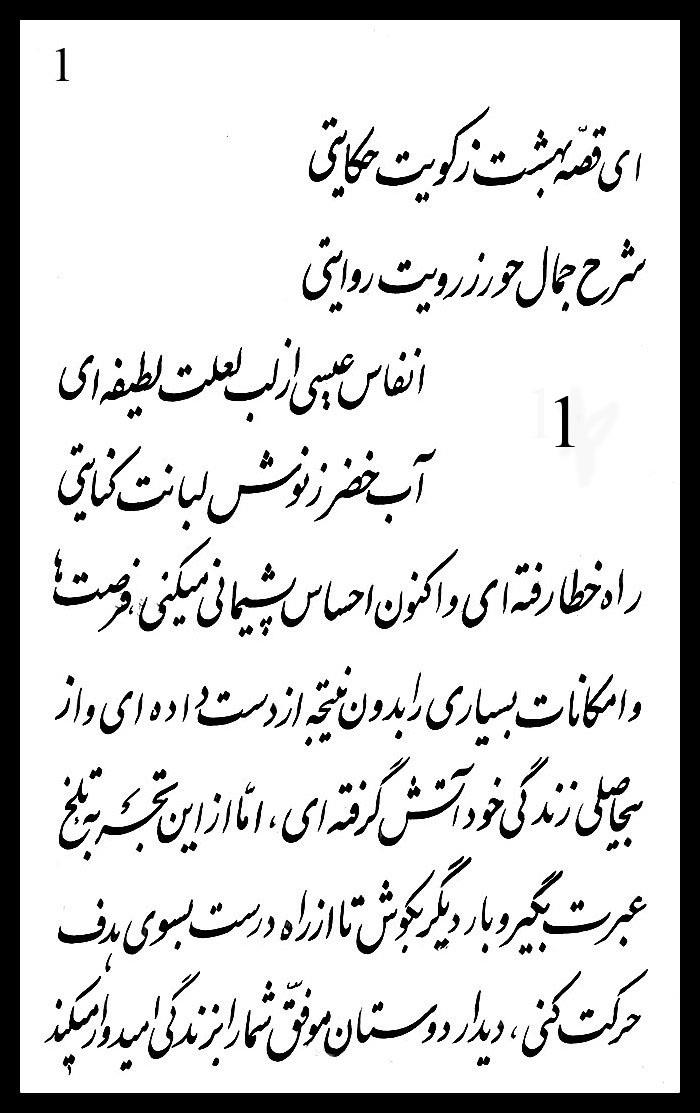 1
ای قصّه بهشت ز کویت حکایتی
شرح جمال حور ز رویت روایتی
انفاس عیسی از لب لعلت لطیفه ای
1
آب خضر ز نوش لبانت کنایتی
راه خطا رفته ای و اکنون احساس پشیمانی میکنی، فرصت ها
و امکانات بسیاری را بدون نتیجه از دست داده ای و از
بیحاصلی زندگی خود آتش گرفته ای، امّا از این تجربه تلخ
عبرت بگیر و بار دیگر بکوش تا از راه درست بسوی هدف
حرکت کنی، دیدار دوستان موفقّ شما را بزندگی امیدوار میکند